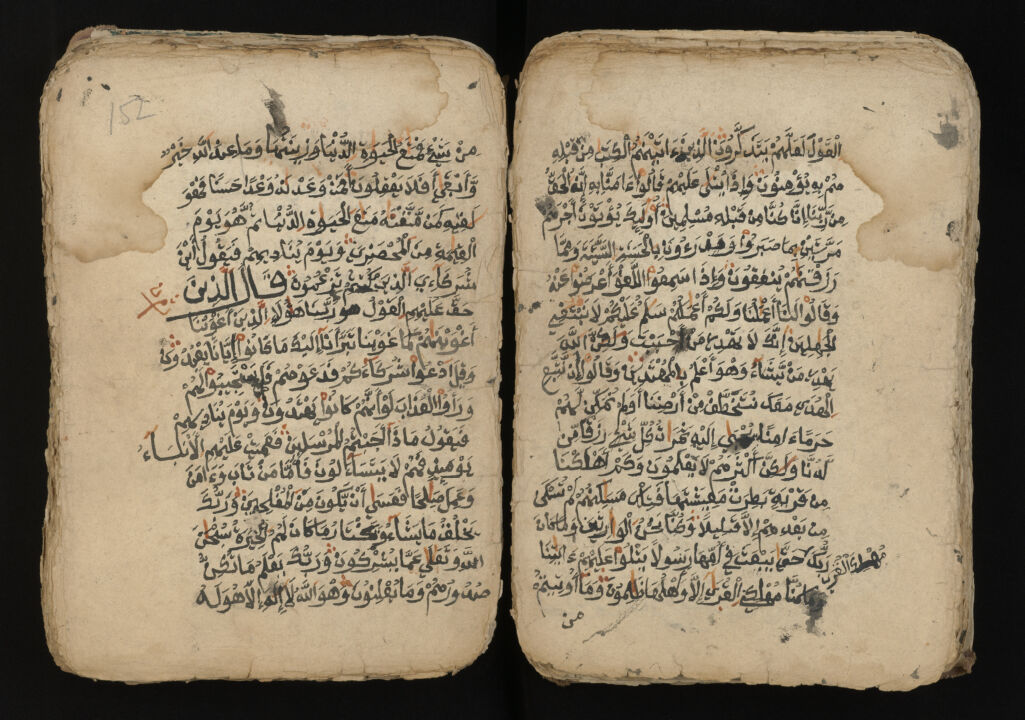 الْقَوْلَ لَعَلَّهُمْ يَتَذَكَّرُونَ الَّذِينَ ءَاتَيْنَٰهُمُ الْكِتَٰبَ مِنْ قَبْلِهِ
هُمْ بِهِ يُؤْمِنُونَ وَإِذَا يُتْلَىٰ عَلَيْهِمْ قَالُوا ءَامَنَّا بِهِ إِنَّهُ الْحَقُّ
مِنْ رَبِّنَا إِنَّا كُنَّا مِنْ قَبْلِهِ مُسْلِمِينَ أُولَٰئِكَ يُؤْتَوْنَ أَجْرَهُمْ
مَرَّتَيْنِ بِمَا صَبَرُوا وَيَدْرَءُونَ بِالْحَسَنَةِ السَّيِّئَةَ وَمِمَّا
رَزَقْنَٰهُمْ يُنْفِقُونَ وَإِذَا سَمِعُوا اللَّغْوَ أَعْرَضُوا عَنْهُ
وَقَالُوا لَنَا أَعْمَٰلُنَا وَلَكُمْ أَعْمَٰلُكُمْ سَلَٰمٌ عَلَيْكُمْ لَا نَبْتَغِي
الْجَٰهِلِينَ إِنَّكَ لَا تَهْدِي مَنْ أَحْبَبْتَ وَلَٰكِنَّ اللَّهَ
يَهْدِي مَنْ يَّشَاءُ وَهُوَ أَعْلَمُ بِالْمُهْتَدِينَ وَقَالُوا إِنْ نَّتَّبِعِ
الْهُدَىٰ مَعَكَ نُتَخَطَّفْ مِنْ أَرْضِنَا أَوَلَمْ نُمَكِّنْ لَّهُمْ
حَرَمًا ءَامِنًا يُجْبَىٰ إِلَيْهِ ثَمَرَٰتُ كُلِّ شَيْءٍ رِزْقًا مِّنْ
لَّدُنَّا وَلَٰكِنَّ أَكْثَرَهُمْ لَا يَعْلَمُونَ وَكَمْ أَهْلَكْنَا
مِنْ قَرْيَةٍ بَطِرَتْ مَعِيشَتَهَا فَتِلْكَ مَسَٰكِنُهُمْ لَمْ تُسْكَنْ
مِنْ بَعْدِهِمْ إِلَّا قَلِيلًا وَكُنَّا نَحْنُ الْوَٰرِثِينَ وَمَا كَانَ
رَبُّكَ حَتَّىٰ يَبْعَثَ فِي أُمِّهَا رَسُولًا يَتْلُوا عَلَيْهِمْ ءَايَٰتِنَا
مُهْلِكَ الْقُرَىٰ
وَمَا كُنَّا مُهْلِكِي الْقُرَىٰ إِلَّا وَأَهْلُهَا ظَٰلِمُونَ وَمَا أُوتِيتُمْ
من
152
مِنْ شَيْءٍ فَمَتَٰعُ الْحَيَوٰةِ الدُّنْيَا وَزِينَتُهَا وَمَا عِنْدَ اللَّهِ خَيْرٌ
وَّأَبْقَىٰ أَفَلَا تَعْقِلُونَ أَفَمَنْ وَعَدْنَٰهُ وَعْدًا حَسَنًا فَهُوَ
لَٰقِيهِ كَمَنْ مَّتَّعْنَٰهُ مَتَٰعَ الْحَيَوٰةِ الدُّنْيَا ثُمَّ هُوَ يَوْمَ
الْقِيَٰمَةِ مِنَ الْمُحْضَرِينَ وَيَوْمَ يُنَادِيهِمْ فَيَقُولُ أَيْنَ
شُرَكَاءِيَ الَّذِينَ كُنْتُمْ تَزْعُمُونَ قَالَ الَّذِينَ
حَقَّ عَلَيْهِمُ الْقَوْلُ رَبَّنَا هَٰؤُلَاءِ الَّذِينَ أَغْوَيْنَا
أَغْوَيْنَٰهُمْ كَمَا غَوَيْنَا تَبَرَّأْنَا إِلَيْكَ مَا كَانُوا إِيَّانَا يَعْبُدُونَ
وَقِيلَ ادْعُوا شُرَكَاءَكُمْ فَدَعَوْهُمْ فَلَمْ يَسْتَجِيبُوا لَهُمْ
وَرَأَوُا الْعَذَابَ لَوْ أَنَّهُمْ كَانُوا يَهْتَدُونَ وَيَوْمَ يُنَادِيهِمْ
فَيَقُولُ مَاذَا أَجَبْتُمُ الْمُرْسَلِينَ فَعَمِيَتْ عَلَيْهِمُ الْأَنْبَاءُ
يَوْمَئِذٍ فَهُمْ لَا يَتَسَاءَلُونَ فَأَمَّا مَنْ تَابَ وَءَامَنَ
وَعَمِلَ صَٰلِحًا فَعَسَىٰ أَنْ يَّكُونَ مِنَ الْمُفْلِحِينَ وَرَبُّكَ
يَخْلُقُ مَا يَشَاءُ وَيَخْتَارُ مَا كَانَ لَهُمُ الْخِيَرَةُ سُبْحَٰنَ
اللَّهِ وَتَعَٰلَىٰ عَمَّا يُشْرِكُونَ وَرَبُّكَ يَعْلَمُ مَا تُكِنُّ
صُدُورُهُمْ وَمَا يُعْلِنُونَ وَهُوَ اللَّهُ لَا إِلَٰهَ إِلَّا هُوَ لَهُ